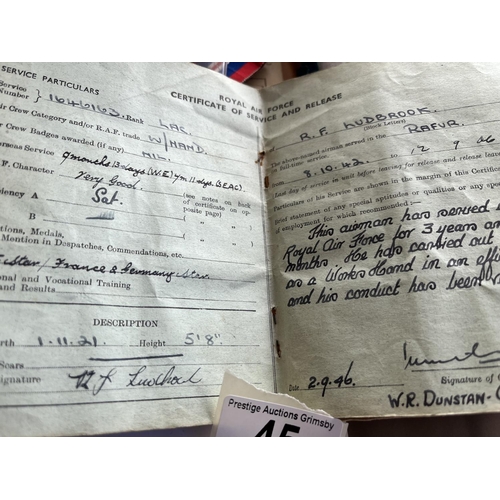 SERVICE PARTICULARS
Service
Number } 1646163 Rank LAC.
Air Crew Category and/or R.A.F. trade W/HAND.
Air Crew Badges awarded (if any) NIL.
Overseas Service 9 months 13 days (W.E) 7m 11 days (SEAC).
R.A.F. Character Very Good.
Proficiency A Sat. (see notes on back
of certificate on op-
posite page)
B
Decorations, Medals,
Mention in Despatches, Commendations, etc.
France & Germany Star
Educational and Vocational Training
and Results
DESCRIPTION
Birth 1.11.21. Height 5'8"
Scars
Signature
ROYAL AIR FORCE
CERTIFICATE OF SERVICE AND RELEASE
R. F. LUDBROOK.
(Block Letters)
The above-named airman served in the RAFVR.
on full-time service,
8.10.42. to 12 9 46
Last day of service in unit before leaving for release and release leave
Particulars of his Service are shown in the margin of this Certificate
Brief statement of any special aptitudes or qualities or any special
of employment for which recommended:—
This airman has served
Royal Air Force for 3 years and
months. He has carried out
as a Works Hand in an
and his conduct has been
Date 2.9.46.
Signature of
W.R. DUNSTAN-
Prestige Auctions Grimsby
45